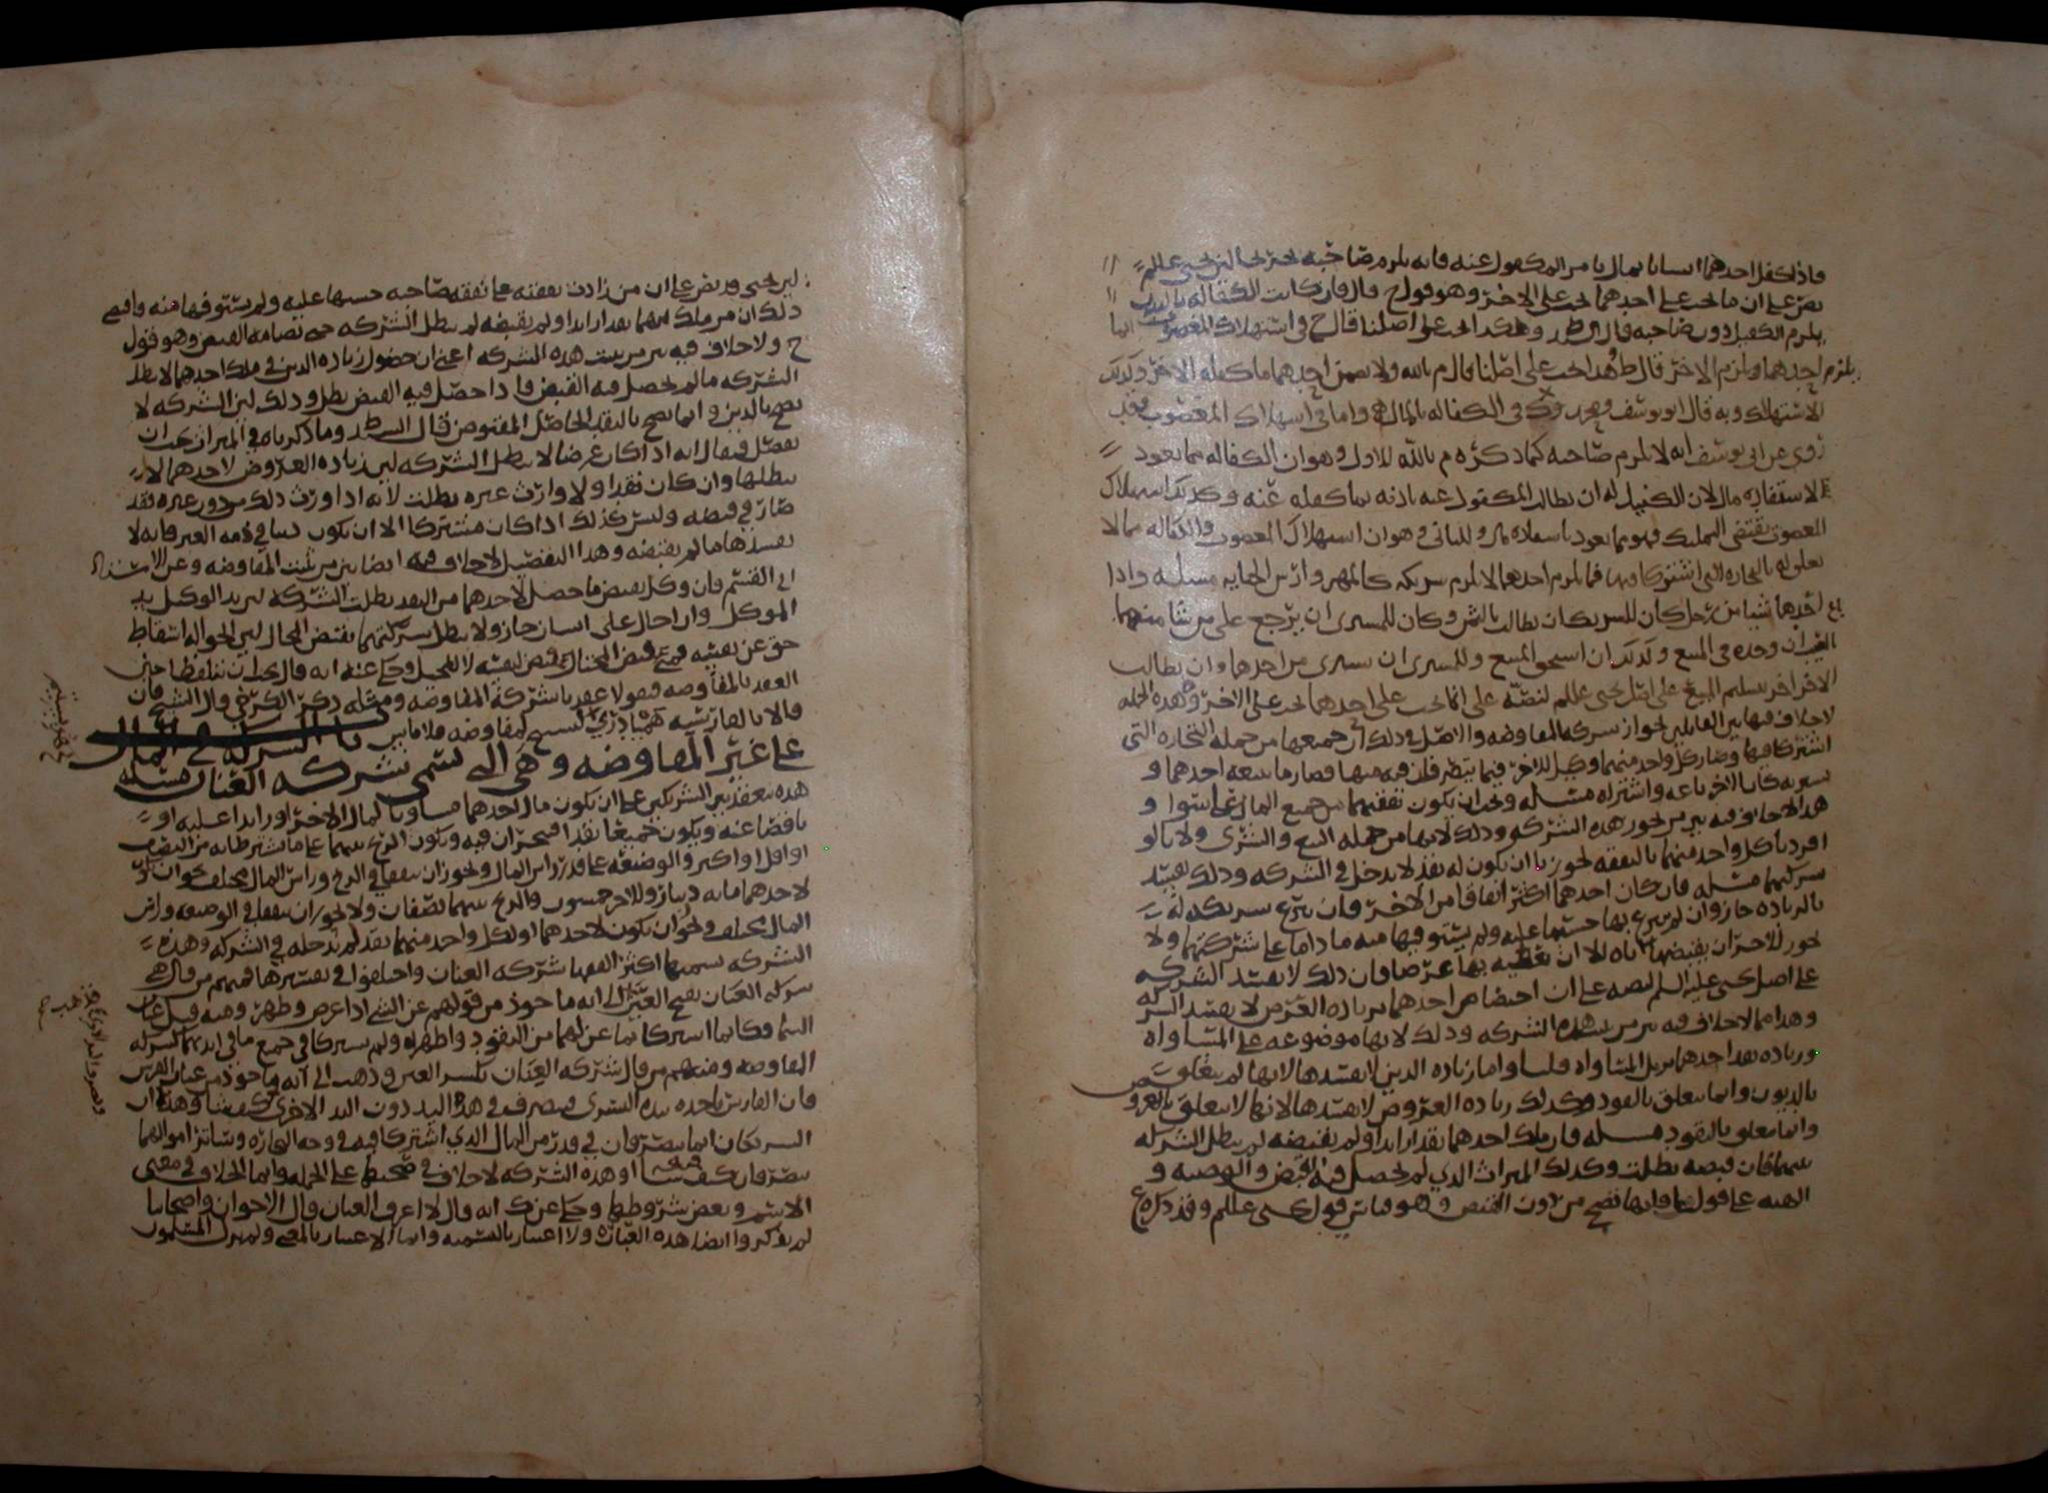 فاذا كفل احدهما انسانا بمال بامر المكفول عنه فانه يلزم صاحبه
نص على ان ما يجب على احدهما يجب على الاخر وهو قول ح قال فان كانت الكفالة بالبدن
يلزم الكفيل دون صاحبه قال وهكذا يجب على اصلنا قال ح في استهلاك المغصوب انما
يلزم احدهما ولا يلزم الاخر قال ط وهذا يجب على اصلنا قال م بالله ولا يضمن احدهما ما كفله الاخر وكذلك
الاستهلاك وبه قال ابو يوسف ومحمد في الكفاله بالمال واما في استهلاك المغصوب فقد
روي عن ابي يوسف انه لا يلزم صاحبه كما ذكره م بالله للاول وهو ان الكفاله مما يعود
لاستفادة مال لان الكفيل له ان يطالب المكفول عنه باذنه بما كفله عنه وكذلك استهلاك
المغصوب يقتضي التمليك فهو مما يعود وللثاني وهو ان استهلاك المغصوب والكفاله مما لا
تعلق له بالتجاره التي اشتركا فيها فما لزم احدهما لا يلزم شريكه كالمهر وارش الجنايه مسله واذا
باع احدهما شيا من رجل كان للشريكان يطالب بالثمن وكان للمشتري ان يرجع على من شا منهما
العيب ان وجده في المبيع وكذلك ان استحق المبيع وللمشتري ان يشتري من احدهما وان يطالب
الاخر بتسليم المبيع على اصل يحيى عللم لنصه على انما يجب على احدهما يجب على الاخر وهذه الجمله
لا خلاف فيها بين القايلين بجواز شركه المفاوضه والاصل في ذلك ان جميعها من جمله التجاره التي
اشتركا فيها وصار كل واحد منهما وكيل للاخر فيما يتصرفان فيه منها فصار ما يبيعه احدهما و
يشتريه كان الاخر باعه واشتراه مسله ويجب ان يكون نفقتهما من جميع المال على السوا و
هذا لا خلاف فيه بين من يجوز هذه الشركه وذلك لانها من جمله البيع والشرى ولانا لو
افردنا كل واحد منهما بالنفقه لجوزنا ان يكون له نقد لا يدخل في الشركه وذلك يفسد
شركتهما مسله فان كان احدهما اكثر انفاقا من الاخر فان تبرع شريكه له
بالزياده جاز وان لم يتبرع بها حسبها عليه ولم يستوفها منه ما داما على شركتهما ولا
يجوز للاخر ان يقبضها اياه الا ان يعطيه بها عرضا فان ذلك لا يفسد الشركه
على اصل يحيى عليه السلم لنصه على ان اختصاص احدهما بزياده العرض لا يفسد الشركه
وهذا مما لا خلاف فيه بين من يثبت هذه الشركه وذلك لانها موضوعه على المساواه
وزياده نقد احدهما يزيل المساواه فلسا واما زياده الدين لا يفسدها لانها لم يتعلق
بالديون وانما يتعلق بالنقود وكذلك زياده العروض لا يفسدها لانها لا يتعلق بالعروض
وانما يتعلق بالنقود مسله فان ملك احدهما نقدا زايدا ولم يقبضه لم يبطل الشركه
بينهما فان قبضه بطلت وكذلك الميراث الذي لم يحصل فيه القبض والوصيه و
الهبه على قول فانها تصح من دون القبض وهو قياس قول يحيى عللم وقد ذكره ع
ليحيى وقد نص على ان من زادت نفقته على نفقه صاحبه حسبها عليه ولم يستوفها منه واقتضى
ذلك ان من ملك منهما نقدا زايدا ولم يقبضه لم يبطل الشركه حتى القبض وهو قول
ح ولا خلاف فيه بين من يثبت هذه الشركه اعني ان حصول زياده الدين في ملك احدهما لا يبطل
الشركه ما لم يحصل فيه القبض فاذا حصل فيه القبض بطل وذلك لان الشركه لا
تصح بالدين وانما تصح بالنقد الحاصل المقبوض قال السيد ط وما ذكرناه في الميراث يجب ان
يفصل فيقال انه اذا كان عرضا لا يبطل الشركه لان زياده العروض لاحدهما لا
يبطلها وان كان نقدا ولا وارث غيره بطلت لانه اذا ورث ذلك من دون غيره فقد
صار في قبضه وليس كذلك اذا كان مشتركا الا ان يكون دينا في ذمه الغير فانه لا
يفسدها ما لم يقبضه وهذا التفصيل لا خلاف فيه ايضا بين من يثبت المفاوضه
الى القسم فان وكل بقبض ما حصل لاحدهما من النقد بطلت الشركه لان يد الوكيل يد
الموكل وان احال على انسان جاز ولا يبطل شركتهما بقبض المحال لان الحواله اسقاط
حق عن نفسه فمتى قبض المحتال قبض لنفسه لا للمحيل وحكي عنه انه قال يجب ان يتلفظا حين
العقد بالمفاوضه فيقولا عقدنا شركة المفاوضه ومثله ذكر الكرخي وقال الشيخ فان
قالا بالفارسيه لم
باب الشركه في المال
على غير المفاوضه وهي التي تسمى شركه العنان مسله
هذه تنعقد بين الشريكين على ان يكون مال احدهما مساويا لمال الاخر او زايدا عليه او
ناقصا عنه ويكون جميعا نقدا فيتجران فيه ويكون الربح بينهما على ما يشترطانه من النصف
او اقل او اكثر والوضيعه على قدر راس المال ويجوز ان يتفقا في الربح وراس المال مختلف نحو ان يكون
لاحدهما مايه دينار وللاخر خمسون والربح بينهما نصفان ولا يجوز ان يتفقا في الوضيعه وراس
المال مختلف ويجوز ان يكون لاحدهما او لكل واحد منهما نقد لم يدخله في الشركه وهذه
الشركه يسميها اكثر الفقها شركه العنان واختلفوا في تفسيرها فمنهم من قال هي
شركه العنان بفتح العين الى انه ماخوذ من قولهم عن الشي اذا عرض وظهر ومنه قيل عنان
السما وكانهما اشتركا فيما عن لهما من النقود واظهراه ولم يشتركا في جميع ما في ايديهما كشركه
المفاوضه ومنهم من قال شركه العنان بكسر العين وذهب الى انه ماخوذ من عنان الفرس
فان الفارس ياخذه بيده اليسرى ويتصرف في هذا اليد دون اليد الاخرى كيف شا وهذان
الشريكان انما يتصرفان في قدر من المال الذي اشتركا فيه في وجه التجاره وسائر اموالهما
يتصرفان فيه كيف شاا وهذه الشركه لا خلاف في صحتها على الجمله وانما الخلاف في معنى
الاسم وبعض شروطها وحكي عن ك انه قال لا اعرف العنان وقال الاخوان واصحابنا
لم يذكروا ايضا هذه العباره ولا اعتبار بالتسميه وانما الاعتبار بالمعنى ولم يزل المسلمون